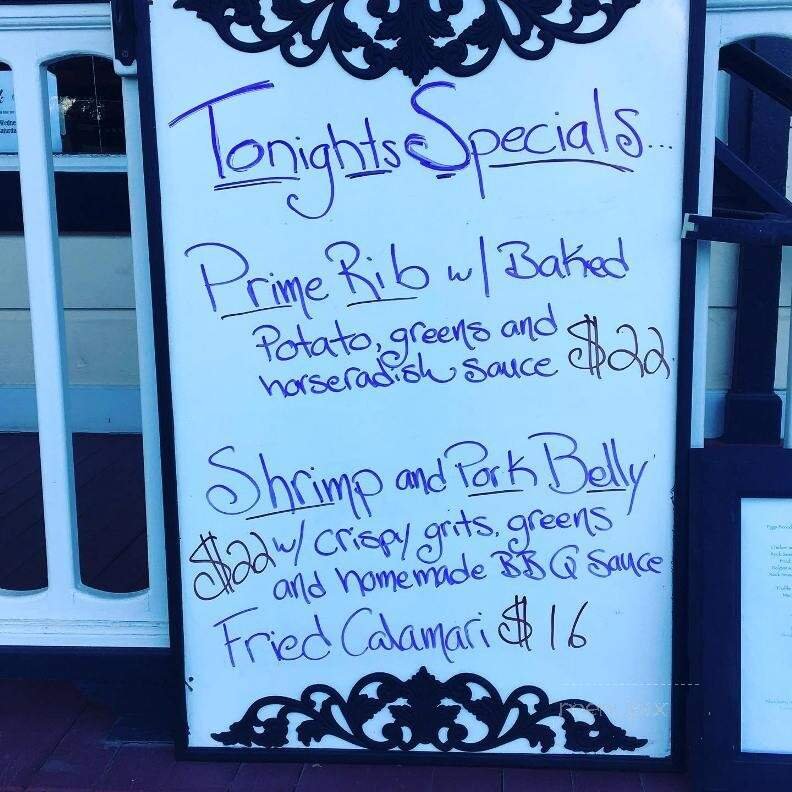 Tonights Specials...
Prime Rib w/ Baked
Potato, greens and
horseradish sauce $22
Shrimp and Pork Belly
$22 w/ crispy grits, greens
and homemade BBQ Sauce
Fried Calamari $16